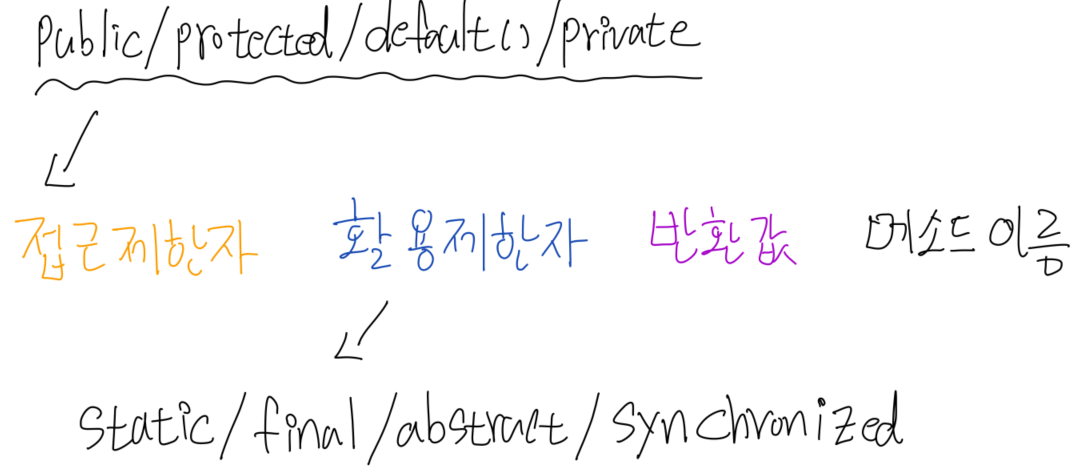 public/protected/default()/private
접근제한자 활용제한자 반환값 메소드 이름
static/final/abstract/synchronized